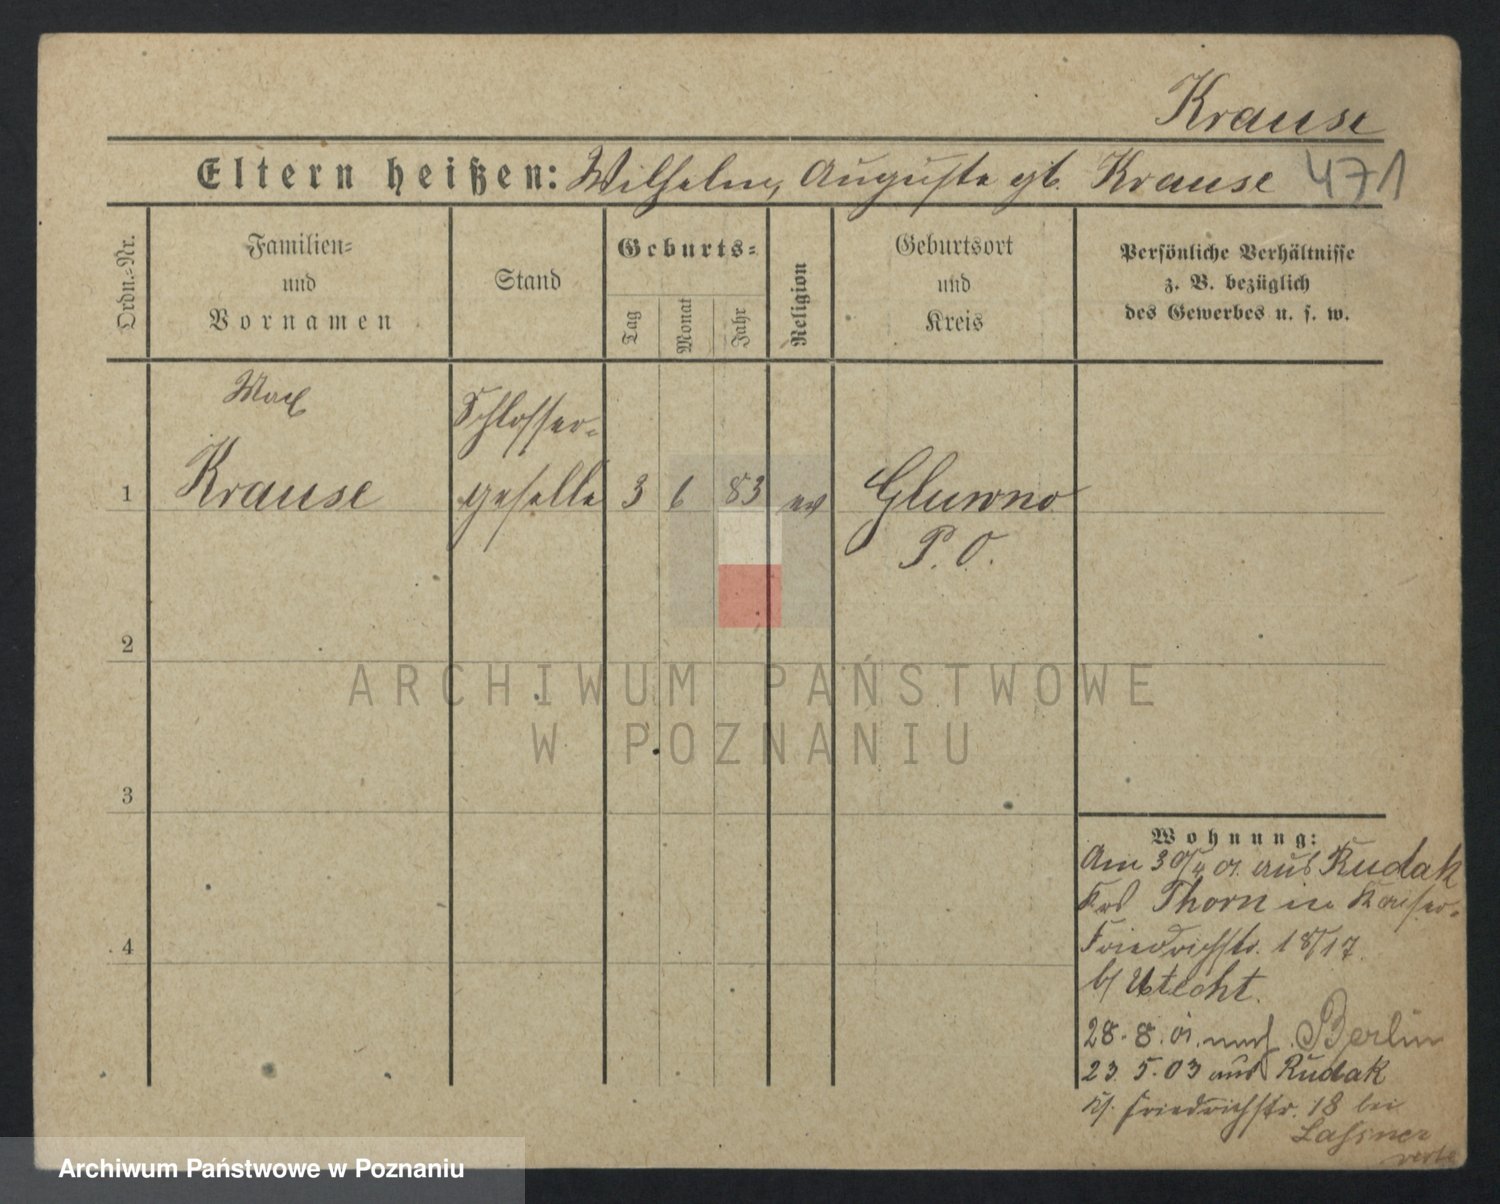 Krause
Eltern heißen: Wilhelm, Auguste gb. Krause 471
Ordn.-Nr.
Familien-
und
Vornamen
Stand
Geburts-
Tag
Monat
Jahr
Religion
Geburtsort
und
Kreis
Persönliche Verhältnisse
z. B. bezüglich
des Gewerbes u. s. w.
Max
Schlosser-
1 Krause geselle 3 6 83 ev Gluwno
P. O.
2
ARCHIWUM PAŃSTWOWE
W POZNANIU
3
4
Wohnung:
Am 30/4 01. aus Rudak
Krs Thorn in Kaiser-
Friedrichstr. 18/17.
b/ Utecht.
28. 8. 01. nach Berlin
23. 5. 03 aus Rudak
Friedrichstr. 18 bei
verte
Archiwum Państwowe w Poznaniu